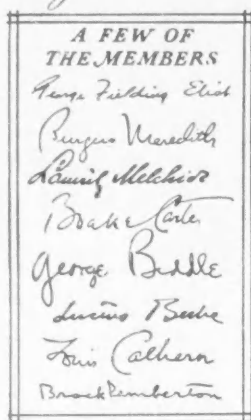 A FEW OF
THE MEMBERS
George Fielding Eliot
Burgess Meredith
Lauritz Melchior
Boake Carter
George Biddle
Lucius Beebe
Louis Calhern
Brock Pemberton